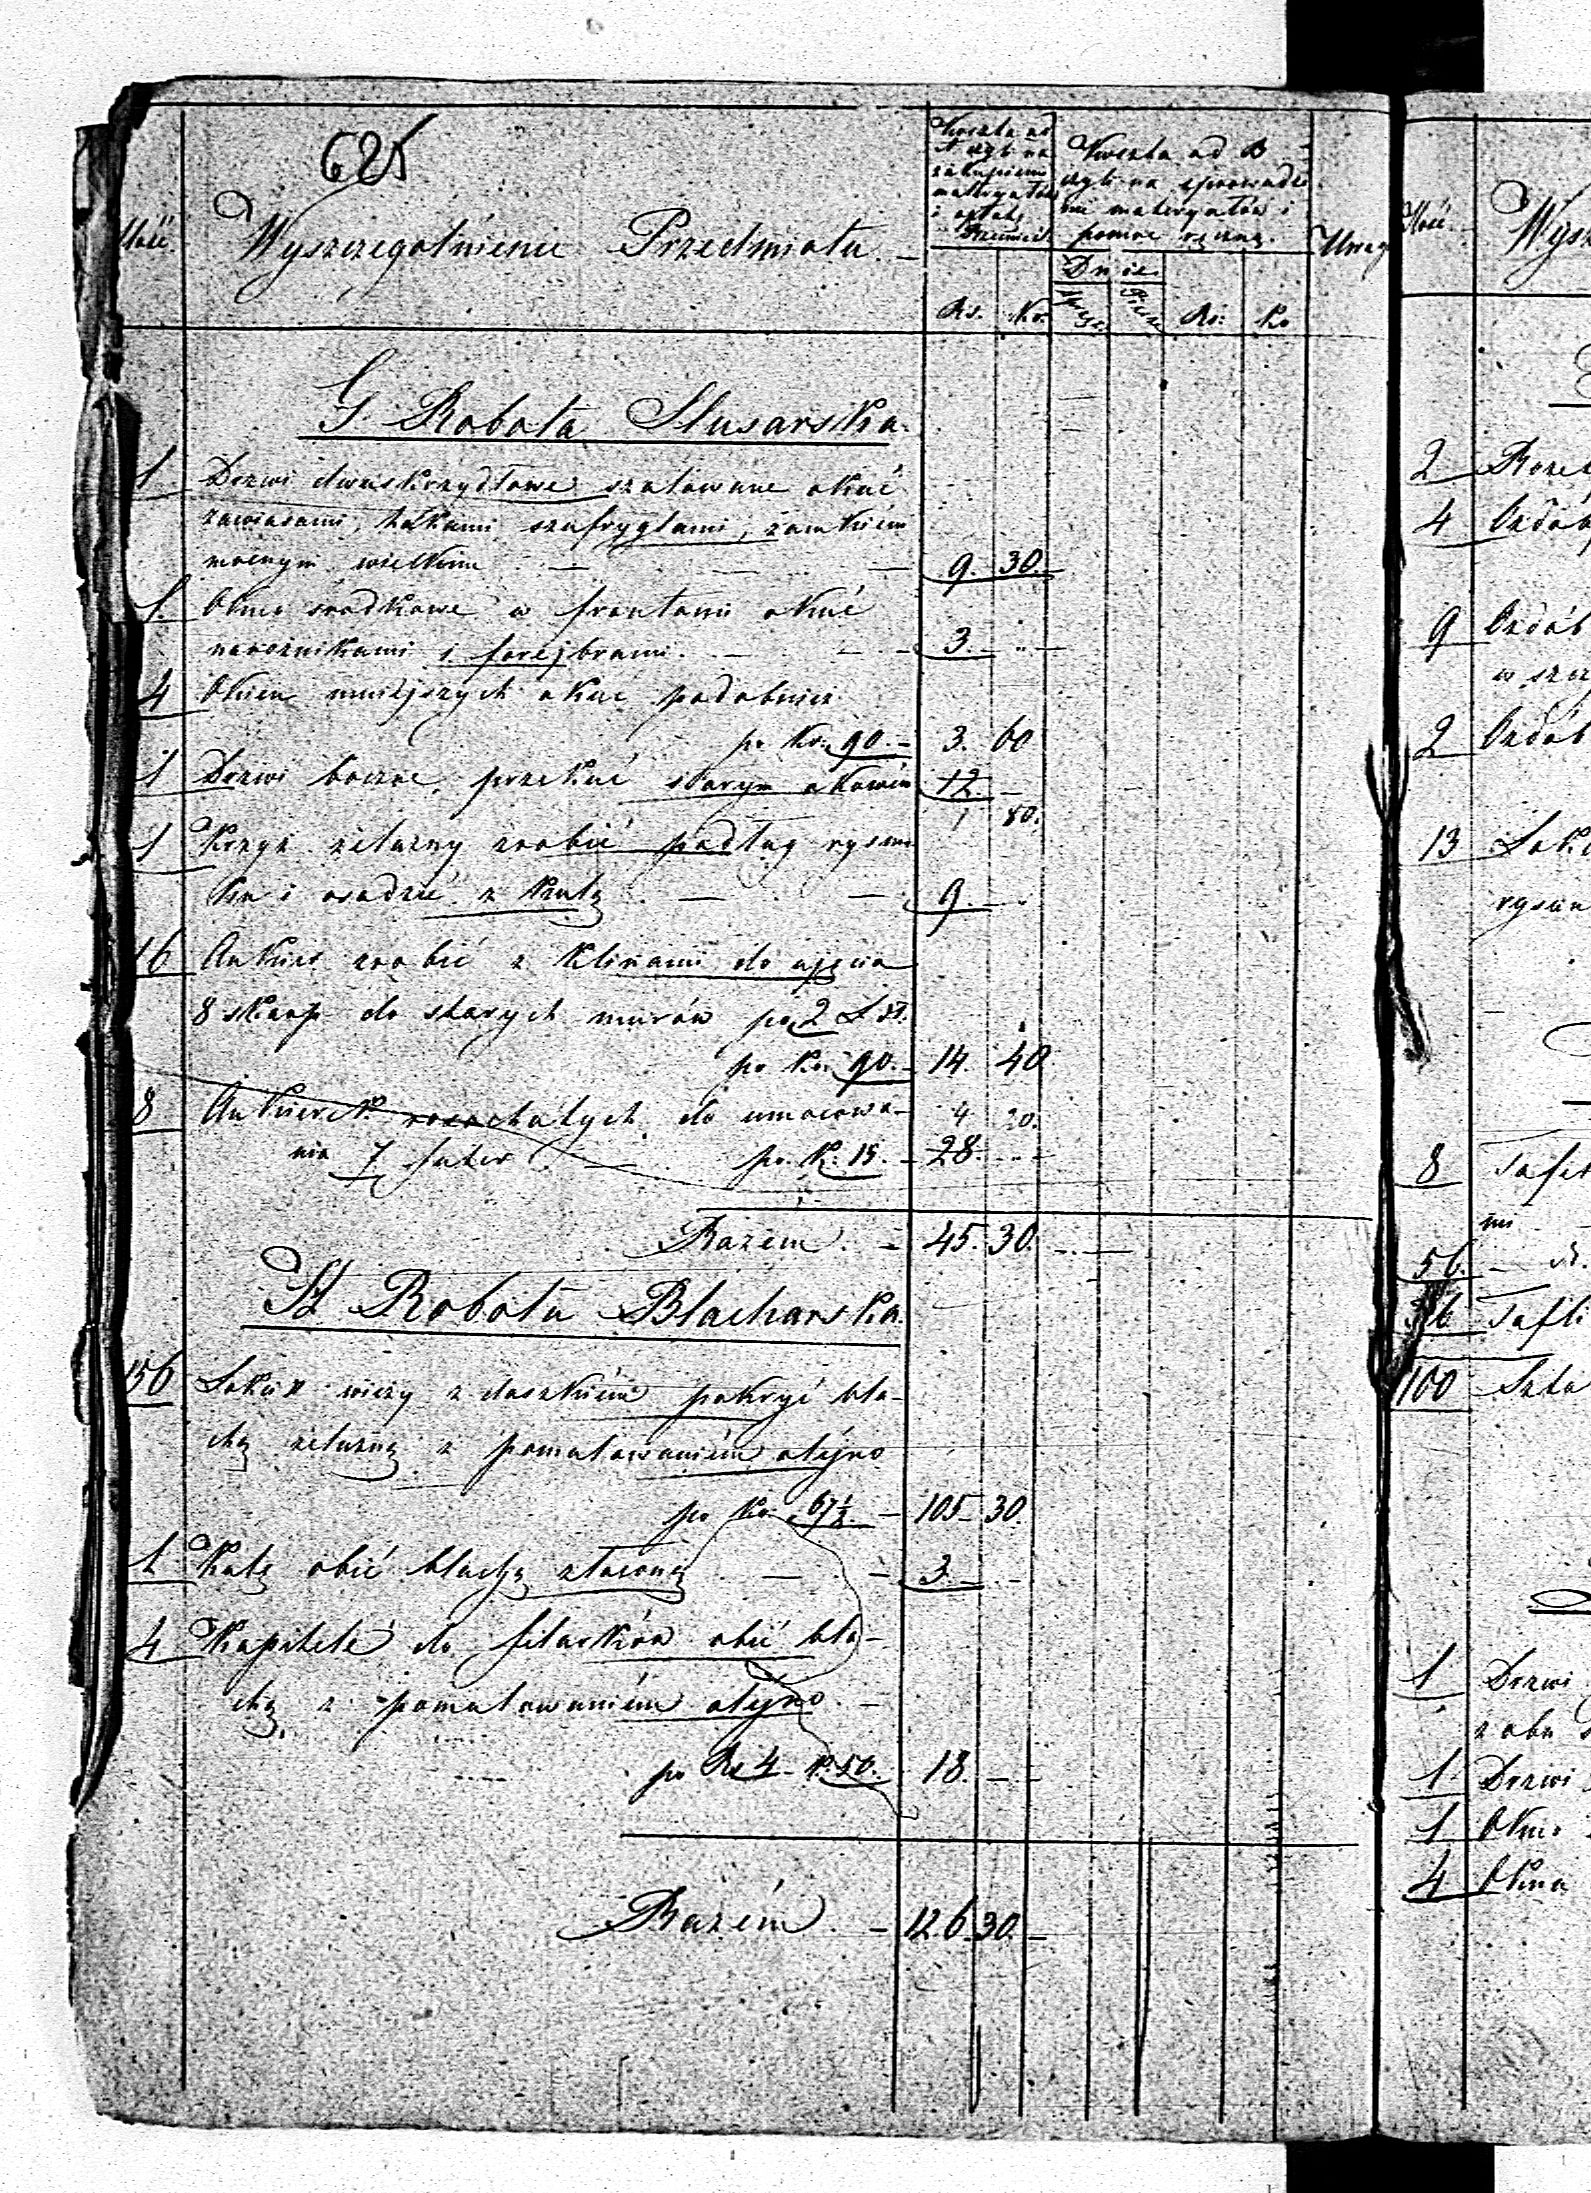 625
Ilość
Wyszczególnienie Przedmiotu.
Kwota ad
A czyli na
zakupienie
materyałów
i opłatę
Rzemieśl.
Kwota ad B
czyli na sprowadze
nie materyałów i
pomoc ręczną.
Uwag
Dnie
Rs. Ko. Piesze Rs: Ko
G. Robota Slusarska.
1 Drzwi dwuskrzydłowe szalowane okuć
zawiasami, hakami szufryglami, zamkiem
mocnym wielkim — — — 9. 30. —
1. Okno środkowe w frontonie okuć
narożnikami i forejbrami. — — — 3. — —
4 Okien mniejszych okuć podobnież
po Ko: 90. — 3. 60
1 Drzwi boczne, przekuć starym okowem 12 —
1 80.
1 Krzyż żelazny zrobić podług rysun
ku i osadzić z kulą — — 9. —
16 Ankier zrobić z klinami do ujęcia
8 skarp do starych murów po 2 Szt.
po Ko: 90. — 14. 40
8 Ankierek rosochatych do umocowa—
4 20.
nia 7 futer — po K. 15. — 28. — —
Razem. — 45. 30. —
H Robota Blacharska.
156 Łokci □ wieży z daszkiem pokryć bla—
chą żelazną z pomalowaniem olejno
po Ko: 67½ — 105 — 30.
1 Kulę obić blachą złoconą — — 3. —
4 Kapitele do filarków obić bla—
chą z pomalowaniem olejno. —
po Rs 4 — K. 50. 18. — —
Razem. — 126. 30. —
Ilość
Wysz
2
4 Ozdób
9 Ozdób
w szcz
2 Ozdób
13 Łokc
rysun
8
56.
Tafli
100
1 Drzwi
z obu
1. Drzwi
1 Okno
4 Okna